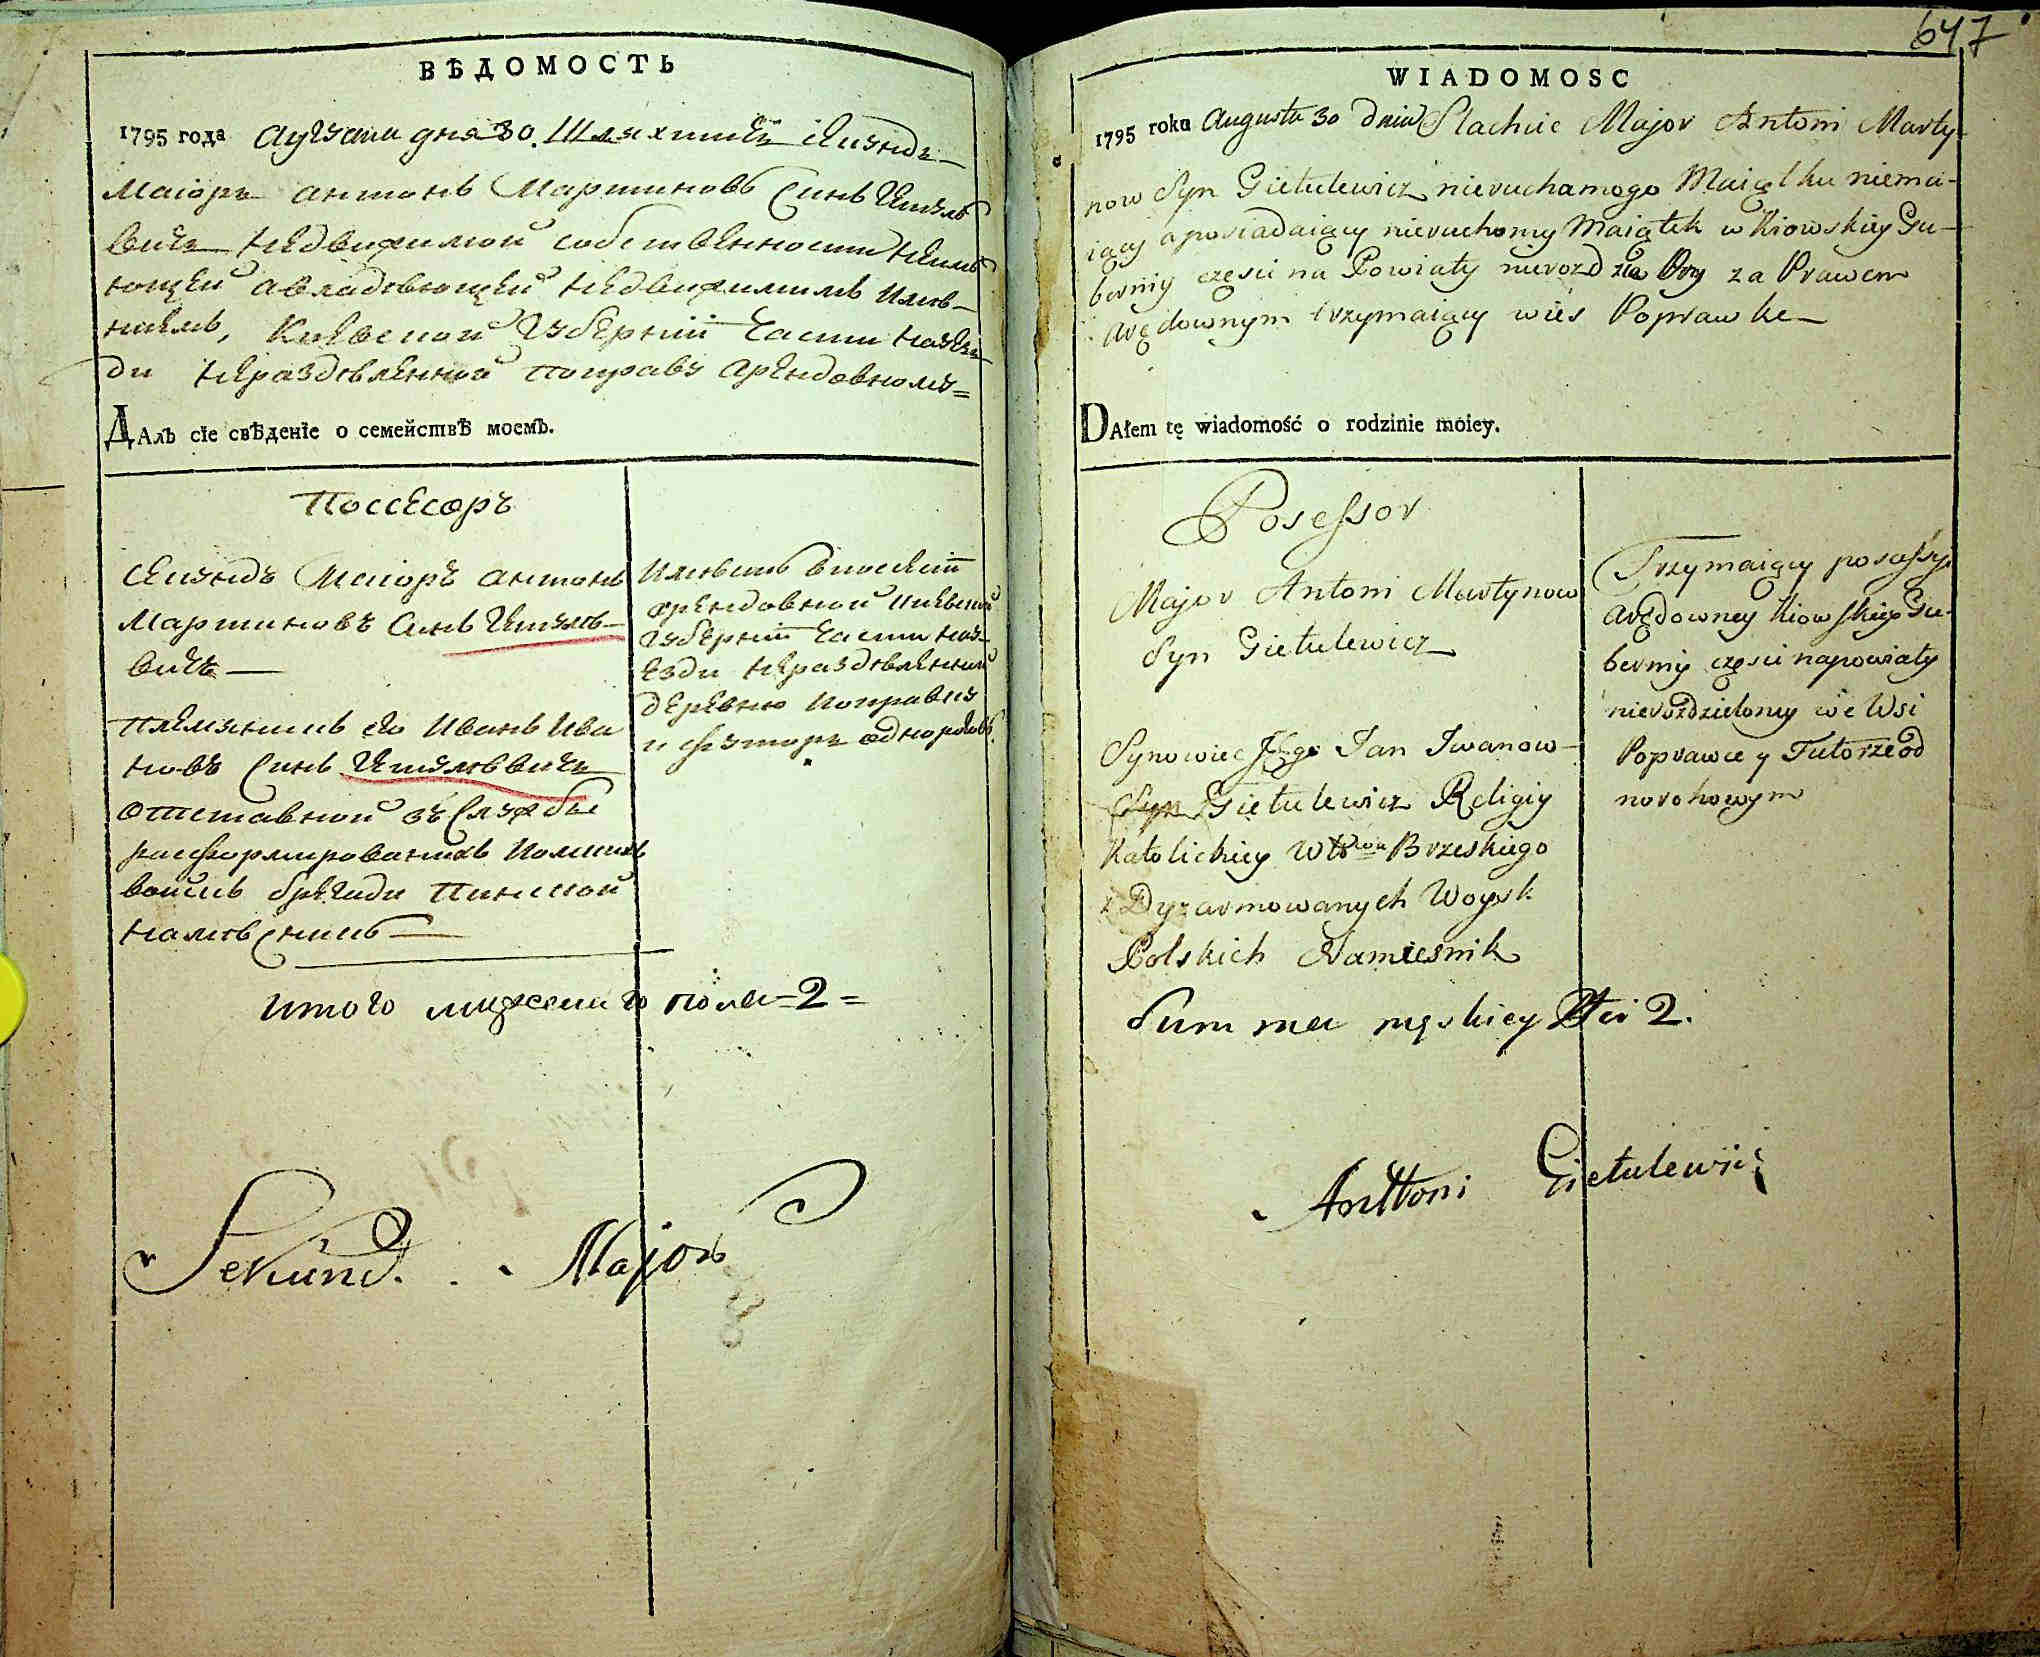 ВѢДОМОСТЬ
1795 года августа дня 30. Шляхтичъ секундъ
маіоръ антонъ Мартиновъ Синъ Гетуле
вичъ недвижимой собственности неимѣ
ющей авладѣющей недвижимимъ имѣ
ніемъ, Кіевской губерніи части науез
ди нераздѣленной поправу арендовному=
ДАлъ сіе свѣденіе о семействѣ моемъ.
Поссесоръ
Секундъ Маіоръ антонъ
Мартиновъ Синъ Гетуле
вичъ
племянникъ его Иванъ Ива
новъ Синъ Гетулевичъ
отставной зъ Службы
бригади Пинской
намѣсникъ
арендовной Киевской
губерніи части нау
езди нераздѣленной
деревню Поправку
и футоръ однороговъ.
итого мужеска го пола=2=
Sekund. Majorъ
647
WIADOMOSC
1795 roku Augusta 30 Dnia Slachcic Major Antoni Marty-
now Syn Gietulewicz nieruchamogo Maiątku niema-
iący aposiadaiący nieruchomy Maiątek w Kiowskiey Gu-
berniy częsci na Powiaty za Prawem
Arędownym trzymaiący wies Poprawke
DAłem tę wiadomość o rodzinie moiey.
Posessor
Major Antoni Martynow
Syn Gietulewicz
Synowiec Jego Jan Iwanow
Syn Gietulewicz Religiy
Katolickiey Brzeskiego
z Dyzarmowanych Woysk
Polskich Namiesnik
Trzymaiący posessyi
Arędowney Kiowskiey Gu-
berniy częsci napowiaty
nierozdzieloney we Wsi
Poprawce y Futorze od
norohowym
Summa męskiey Płci 2.
Anttoni Gietulewicz